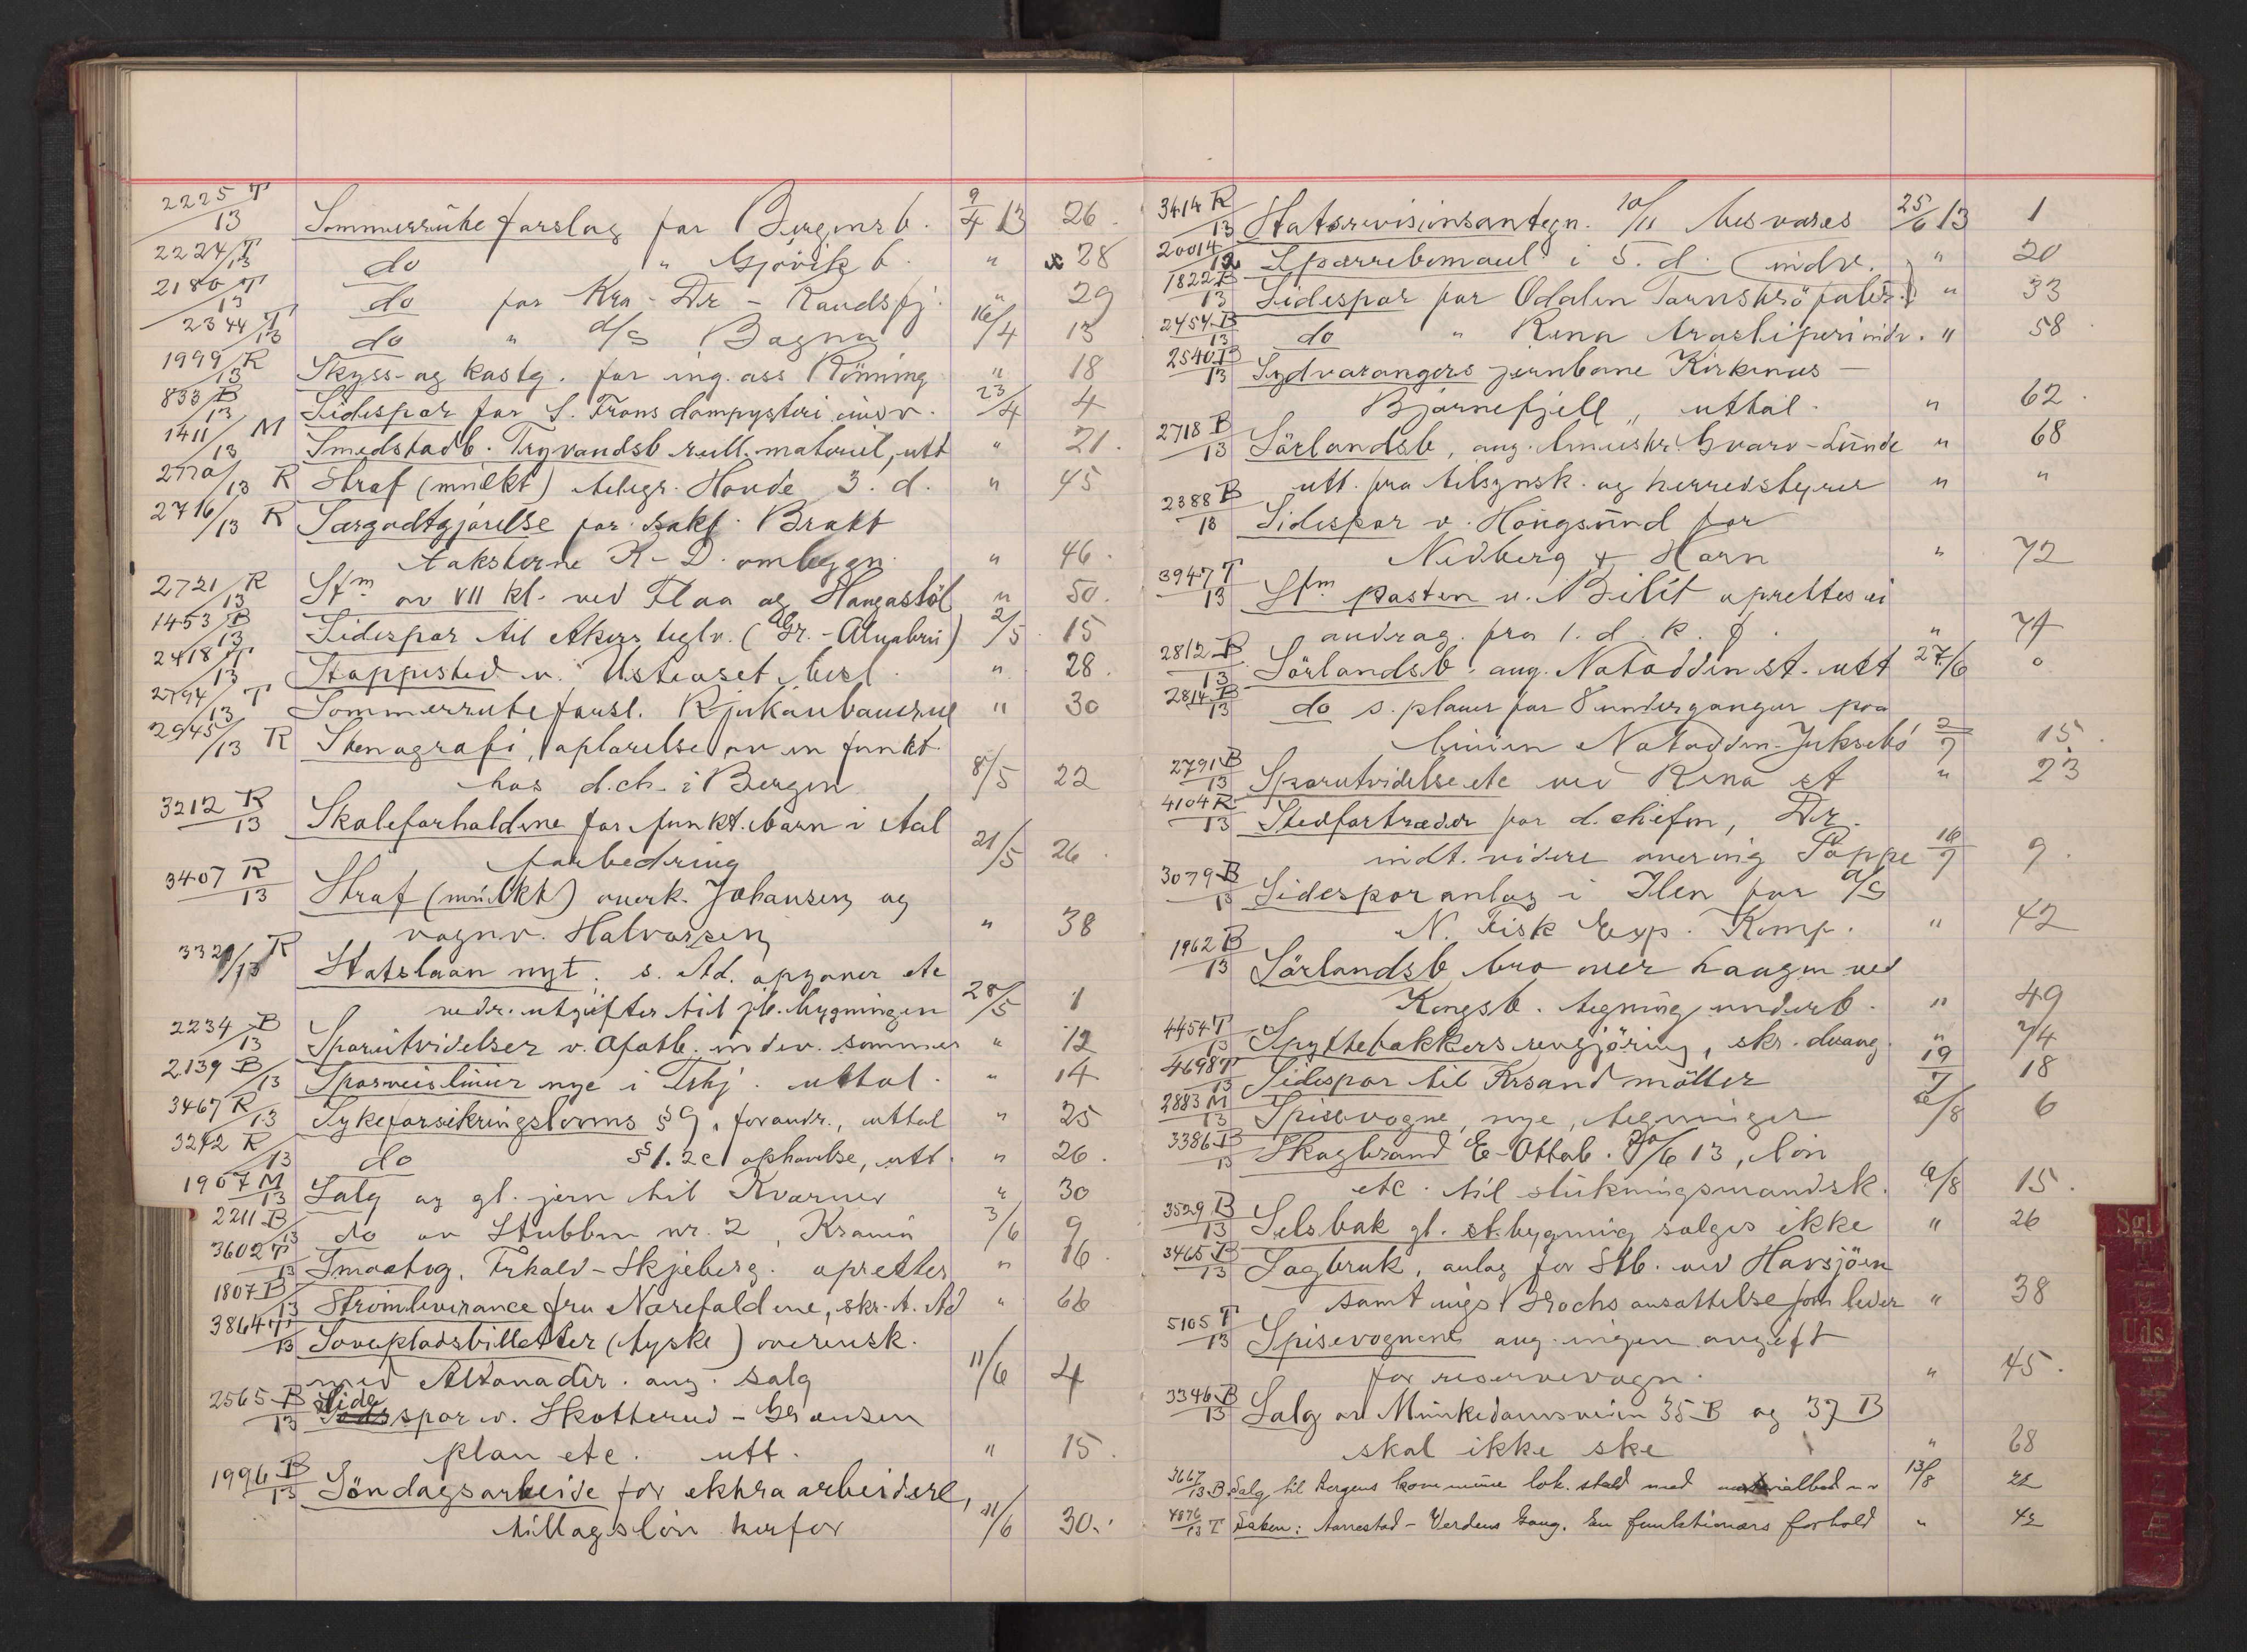 2225 T/13 Sommerruteforslag for Bergensb. 9/4 13 26.
2224 T/13 do " Gjøvikb. " 28
2180 T/13 do for Kra - Dr - Randsfj. " 29
2344 T/13 do " d/s Bagna 16/4 13
1999 R/13 Skyss- og kostg. for ing. ass Rönning " 18
833 B/13 Sidespor for S. Trons dampysteri indv. 23/4 4
1411/13 M Smedstadb. Tryvandsb rull. materiel, utt " 21.
2770/13 R Straf (mulkt) telegr. Hovde 3. d. " 45
2716/13 R Særgodtgjörelse for sakf. Brakt
taksterne K-D. ombygn. " 46.
2721 R/13 Stm av VII kl. ved Flaa og Haugastöl " 50.
1453 B/13 Sidespor til Akers teglv. (Gr. - Alnabru) 2/5 15
2418 T/13 Stoppested v. Ustaoset besl. " 28.
2794 T/13 Sommerruteforsl. Rjukanbanerne " 30
2945/13 R Stenografi, oplærelse av en funkt.
hos d.ch. i Bergen 8/5 22
3212 R/13 Skoleforholdene for funkt. barn i Aal
forbedring 21/5 26.
3407 R/13 Straf (mulkt) overk. Johansen og
vognv. Halvorsen " 38
332 /13 R Statslaan nyt. s. Ad. opgaver etc
vedr. utgifter til jb. bygningen 28/5 1
2234 B/13 Sporutvidelser v. Ofotb. indev. sommer " 12
2139 B/13 Sporveislinier nye i Trhj. uttal. " 14
3467 R/13 Sykeforsikringslovens § 9, forandr., uttal " 25
3272 R/13 do § 1. 2c ophævelse, utt. " 26.
1907 M/13 Salg av gl. jern til Kværner " 30
2211 B/13 do av Stubben nr. 2, Krania 3/6 9
3602 T/13 Smaatog. Frkald - Skjeberg. oprettes " 16.
1807 B/13 Strömleverance fra Norefaldene, skr. t. Ad " 66
3864 T/13 Sovepladsbilletter (tyske) overensk.
med Altonadir. ang. salg 11/6 4
2565 B/13 Sidespor v. Skotterud - Grænsen
plan etc. utt. " 15.
1996 B/13 Söndagsarbeide for ekstra arbeidere,
tillagslön herfor 11/6 30.
3414 R/13 Statsrevisionsantegn. 10/11 besvares 25/6 13 1
20014/12 Sparrebomaul i 5. d. (indv.) " 20
1822 B/13 Sidespor for Odalen Torvströfabr. " 33
2454 B/13 do " Rena træsliperi indv. " 58
2540 B/13 Sydvarangers jernbane Kirkenes -
Bjørnefjell, uttal. " 62.
2718 B/13 Sörlandsb, ang. Gvarv - Lunde " 68
utt. fra tilsynsk. og herredstyrer " "
2388 B/13 Sidespor v. Hougsund for
Nedberg & Horn " 72
3947 T/13 Stm posten v. Bilit oprettes ei
andrag. fra 1. d. k. " 74
2812 B/13 Sörlandsb. ang. Notodden st. utt 27/6 0
2814 B/13 do s. planer for 8 underganger paa
linien Notodden - Juksebö 2/7 15.
2791 B/13 Sporutvidelse etc ved Rena st " 23
4104 R/13 Stedfortræder for d. chefen, Dr.
indt. videre overing Poppe 16/7 9.
3079 B/13 Sidesporanlæg i Ilen for A/S
N. Fisk Exp. Komp. " 42
1962 B/13 Sörlandsb bro over Laagen ved
Kongsb. tegning underb. " 49
4454 T/13 Spyttebakkers rengjöring, skr. dvang. " 74
4698 T/13 Sidespor til Krsand möller 19/7 18
2883 M/13 Spisevogne, nye, tegninger 6/8 6
3386 B/13 Skogbrand E-Ottab. 20/6 13, lön
etc. til slukningsmandsk. 6/8 15.
3529 B/13 Selsbak gl. st.bygning sælges ikke " 26
3465 B/13 Sagbruk, anlæg for Stb. ved Havsjöen
samt ing. Brochs ansættelse som leder " 38
5105 T/13 Spisevognene ang. ingen avgift
for reservevogn. " 45.
3346 B/13 Salg av Munkedamsveien 35 B og 37 B
skal ikke ske " 68
3667/13 B Salg til Bergens kommune lok. stald med 13/8 22
4876/13 T Saken: Aarrestad - Verdens Gang. En funktionærs forhold " 42
Sgl
Uds